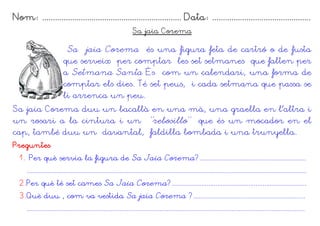 Nom: ........................................................ Data: ........................................
Sa jaia Corema
Sa jaia Corema és una figura feta de cartró o de fusta
que serveix per comptar les set setmanes que falten per
a Setmana Santa És com un calendari, una forma de
comptar els dies. Té set peus, i cada setmana que passa se
li arrenca un peu.
Sa jaia Corema duu un bacallà en una mà, una graella en l'altra i
un rosari a la cintura i un "rebosillo" que és un mocador en el
cap, també duu un davantal, faldilla bombada i una trunyella.
Preguntes
1. Per què servia la figura de Sa Jaia Corema? ............................................................
............................................................................................................................................
2.Per què té set cames Sa Jaia Corema? ............................................................
3.Què duu , com va vestida Sa jaia Corema ? ............................................................
............................................................................................................................................